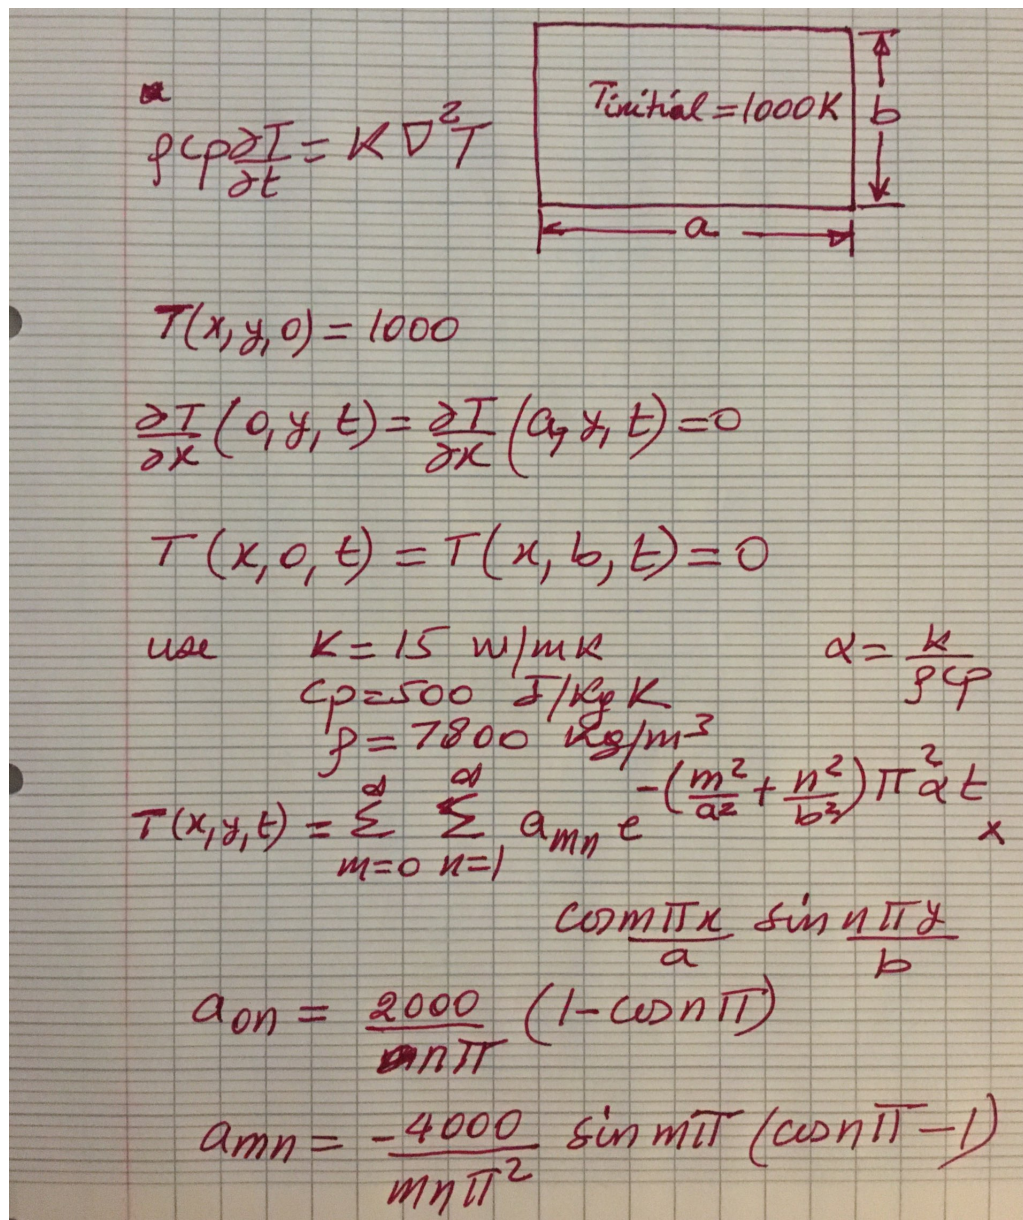 ρcp ∂T/∂t = K∇²T
Tinitial = 1000K
b
a
T(x,y,0) = 1000
∂T/∂x (0,y,t) = ∂T/∂x (a,y,t) = 0
T(x,0,t) = T(x,b,t) = 0
use K = 15 W/mK α = k/ρcp
cp = 500 J/kgK
ρ = 7800 kg/m³
T(x,y,t) = ∞Σm=0 ∞Σn=1 amn e^-(m²/a² + n²/b²)π²αt ×
cos mπx/a sin nπy/b
aon = 2000/nπ (1 - cosnπ)
amn = -4000/mnπ² sin mπ (cosnπ - 1)